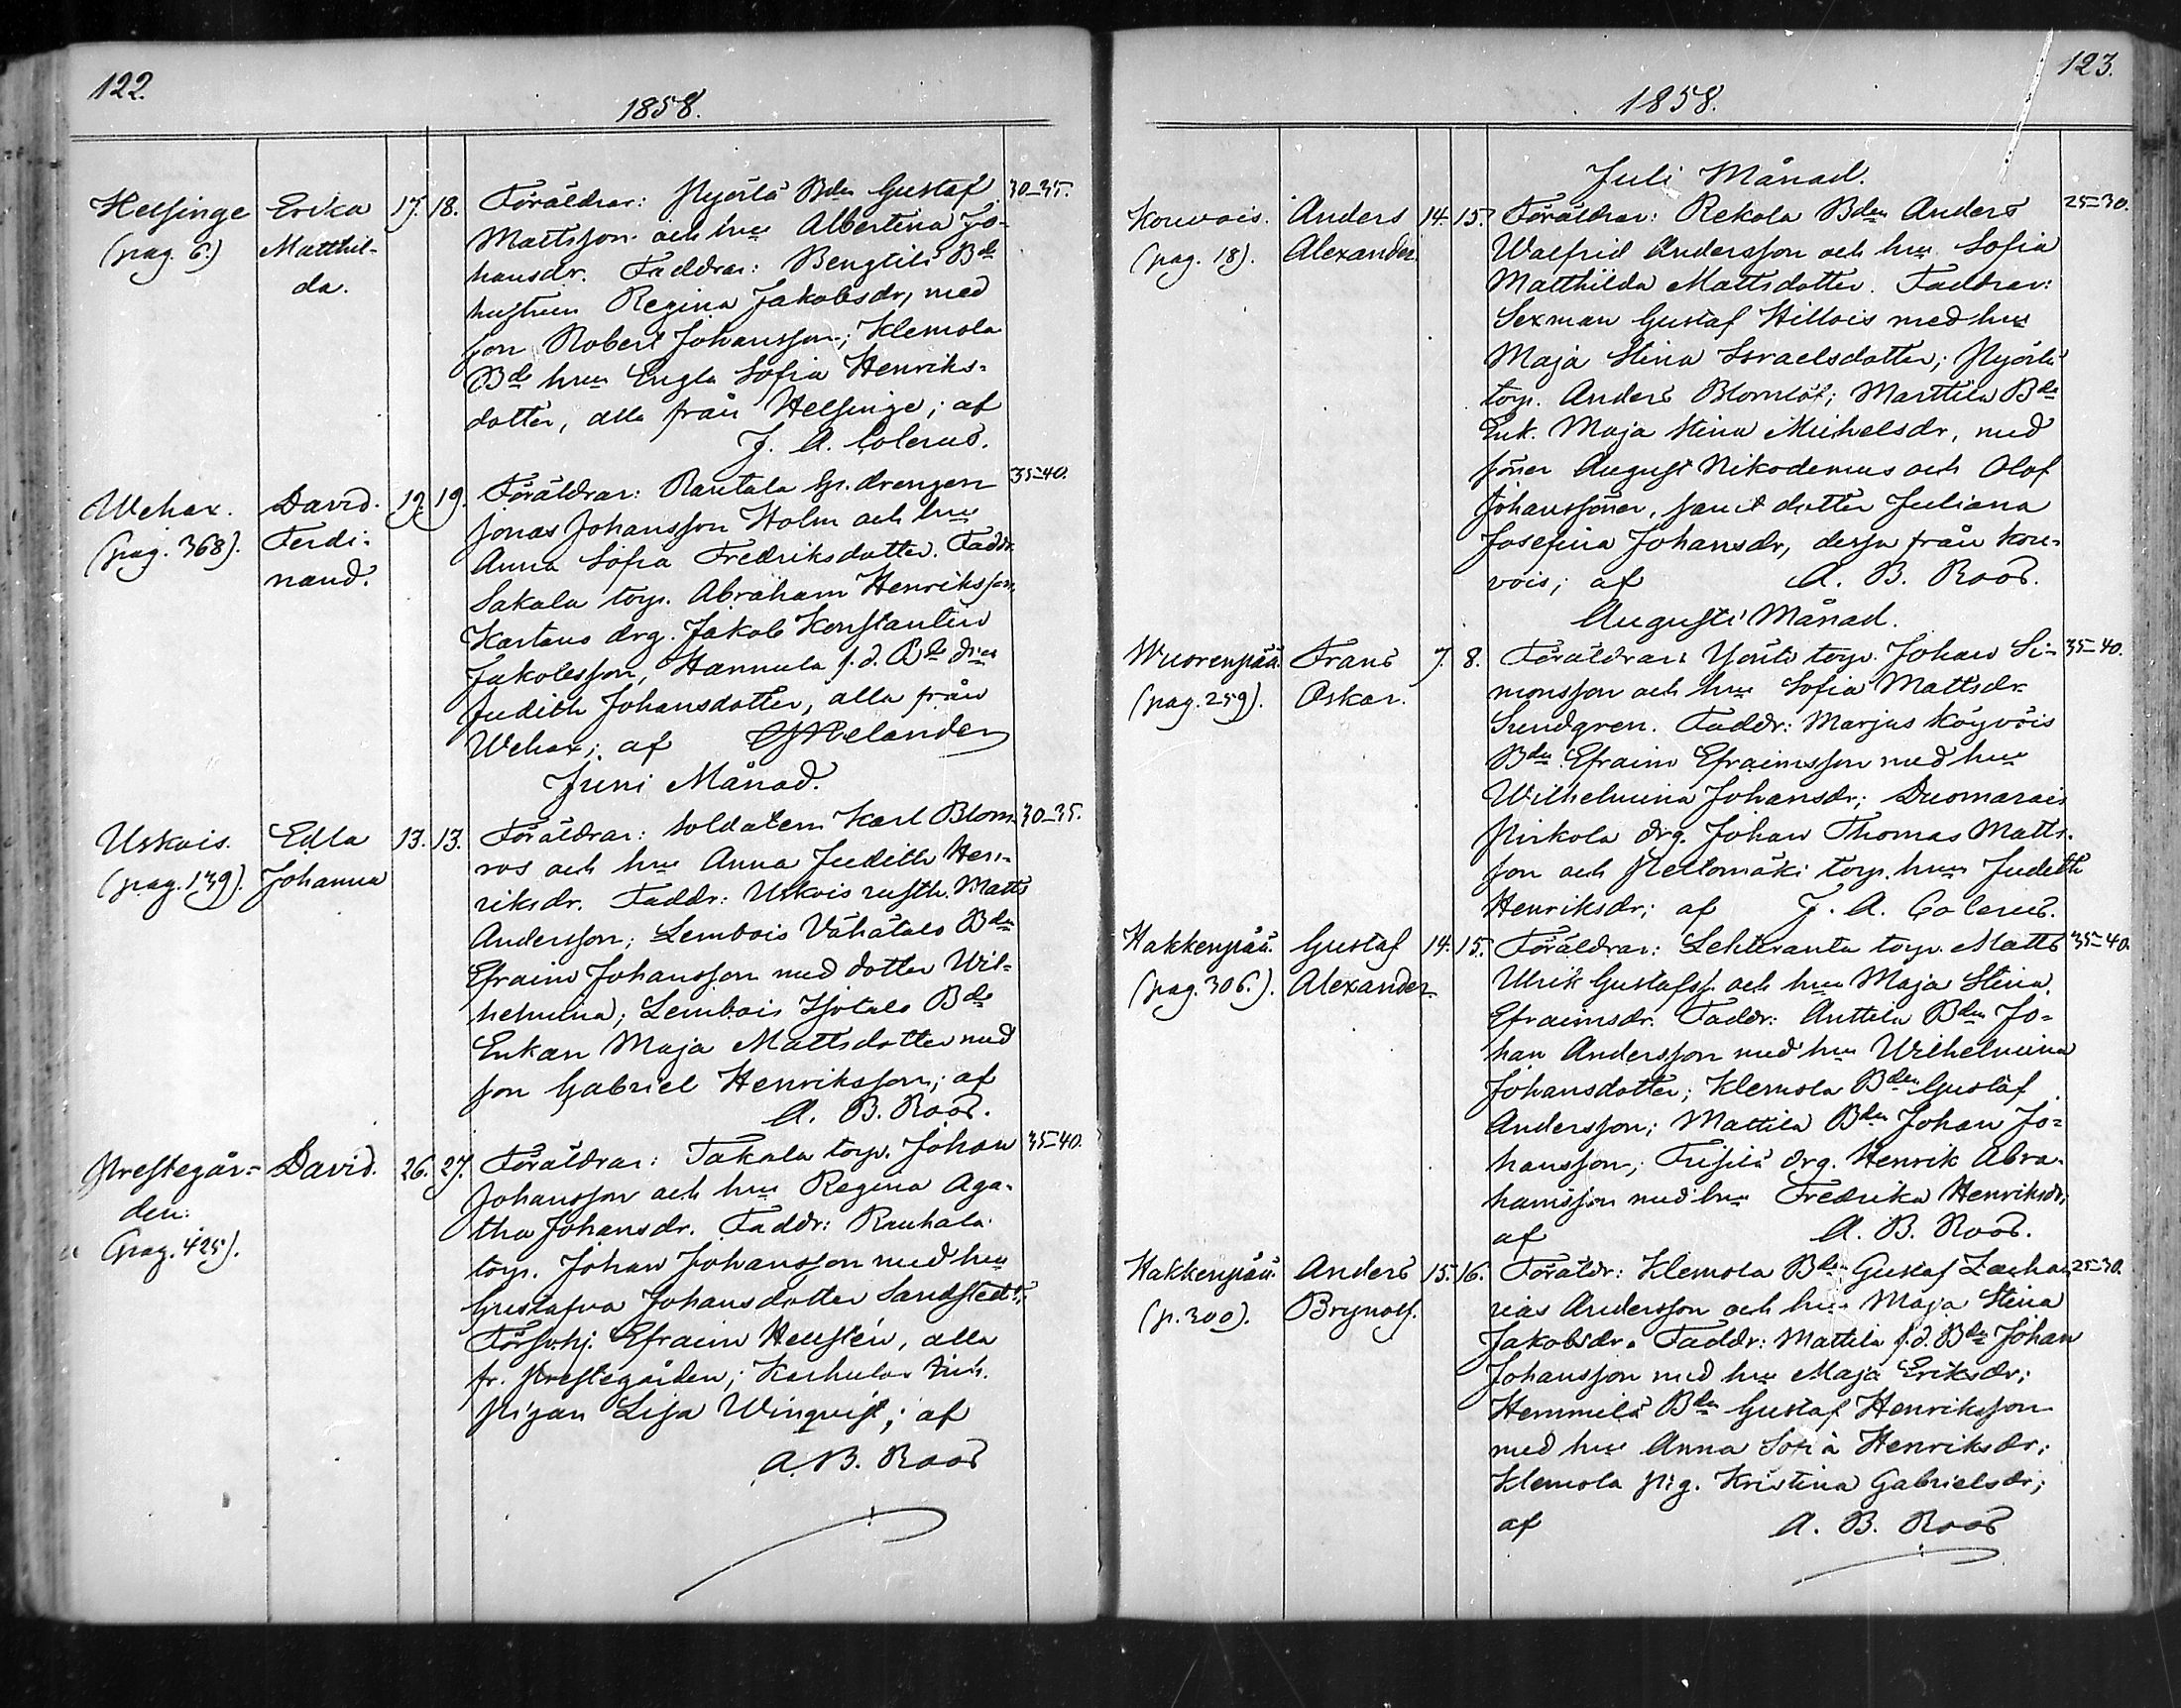 122.
1858.
Helsinge Erika 17. 18. Föräldrar: Pyörlä Bdn Gustaf 30-35.
(pag. 6.) Matthil- Mattsson och hru Albertina Jo-
da. hansdr. Faddrar: Bengtilä Bde
hustrun Regina Jakobsdr, med
son Robert Johansson; Klemola
Bde hru Engla Sofia Henriks-
dotter, alla från Helsinge; af
J. A. Colerus.
Wehax. David 19. 19. Föräldrar: Rautala Gr. drengen 35-40.
(pag. 368). Ferdi- Jonas Johansson Holm och hru
nand. Anna Sofia Fredriksdotter. Faddr.
Sakala torp. Abraham Henriksson,
Kartano drg. Jakob Konstantin
Jakobsson, Hannula f. d. Bde
Judith Johansdotter, alla från
Wehax; af Helander
Juni Månad.
Uskois. Edla 13. 13. Föräldrar: Soldaten Karl Blom- 30-35.
(pag. 139). Johanna ros och hru Anna Judith Hen-
riksdr. Faddr: Uskois rusth. Matts
Andersson; Lembois Vähätalo Bdn
Efraim Johansson med dotter Wil-
helmina; Lembois Isotalo Bde
Enkan Maja Mattsdotter med
son Gabriel Henriksson; af
A. B. Roos.
Prestegår- David. 26. 27. Föräldrar: Takala torp. Johan 35-40.
den. Johansson och hru Regina Aga-
(pag. 425). tha Johansdr. Faddr: Rauhala
torp. Johan Johansson med hru
Gustafva Johansdotter Sandstedt;
Efraim Hellstén, alla
fr. Prestegården; Karhula
pigan Lisa Winqvist; af
A. B. Roos
123.
1858.
Juli Månad.
Kouvois. Anders 14. 15. Föräldrar: Rekola Bdn Anders 25-30.
(pag. 18). Alexander. Walfrid Andersson och hru Sofia
Matthilda Mattsdotter. Faddrar:
Sexman Gustaf Hillois med hru
Maja Stina Israelsdotter; Pyörlä
torp. Anders Blomlöf; Marttila Bde
Enk. Maja Stina Michelsdr, med
söner August Nikodemus och Olof
Johanssöner, samt dotter Juliana
Josefina Johansdr, dessa från Kou-
vois; af A. B. Roos.
Augusti Månad.
Wuorenpää. Frans 7. 8. Föräldrar: Yöuti torp. Johan Si- 35-40.
(pag. 259). Oskar. monsson och hru Sofia Mattsdr
Sundgren. Faddr: Marjus Köyvöis
Bdn Efraim Efraimsson med hru
Wilhelmina Johansdr; Duomarais
Pirkola drg. Johan Thomas Matts-
son och Peltomäki torp. hru Judith
Henriksdr; af J. A. Colerus.
Hakkenpää. Gustaf 14. 15. Föräldrar: Lehtiranta torp. Matts 35-40.
(pag. 306.). Alexander. Ulrik Gustafss. och hru Maja Stina
Efraimsdr. Faddr: Anttila Bdn Jo-
han Andersson med hru Wilhelmina
Johansdotter; Klemola Bdn Gustaf
Andersson; Mattila Bdn Johan Jo-
hansson; drg. Henrik Abra-
hamsson med hru Fredrika Henriksdr;
af A. B. Roos.
Hakkenpää. Anders 15. 16. Föräldr: Klemola Bdn Gustaf Zacha- 25-30.
(p. 300). Brynolf. rias Andersson och hru Maja Stina
Jakobsdr. Faddr: Mattila f. d. Bdn Johan
Johansson med hru Maja Eriksdr;
Hemmilä Bdn Gustaf Henriksson
med hru Anna Sofia Henriksdr;
Klemola pig. Kristina Gabrielsdr;
af A. B. Roos